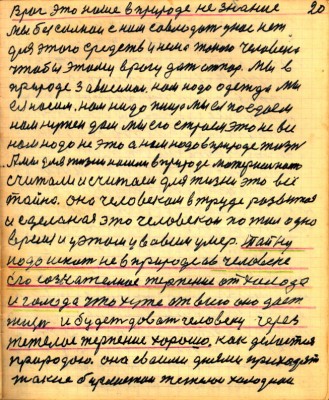 20
Враг это наше в природе не знание
мы бессильны с ним совладать у нас нет
для этого средств и нема такого человека
чтобы этому врагу дать отпор. Мы в
природе зависимы. нам надо одежда мы
её носим, нам надо пища мы её поедаем
нам нужен дом мы его строем это не все
нам надо не это а нам надо в природе жизнь
А мы для жизни нашли в природе материал его
считали и считаем для жизни это всё
тайна. она человеком в труде развитая
и сделаная это человеком пожил одно
время и у этом у во всем умер. Тайну
надо искать не в природе а в человеке
его сознательное терпение от холода
и голода что хуже от всего оно дает
жизнь и будет давать человеку через
тяжелое терпение хорошо, как делается
природою. она своими днями приходят
такие бывают тяжелые холодные